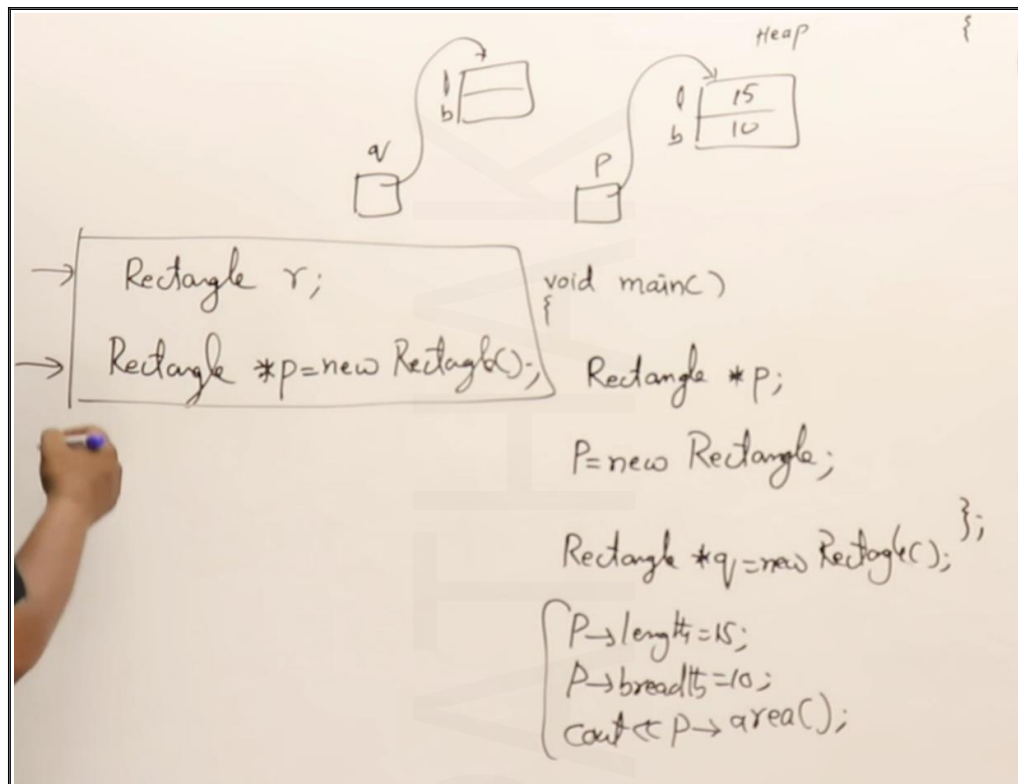 Heap
{
l
b
l 15
b 10
q
p
Rectangle r;
Rectangle *p=new Rectagle();
void main()
{
Rectangle *p;
P=new Rectangle;
Rectangle *q=new Rectagle();
};
P→length=15;
P→breadth=10;
cout<<P→area();